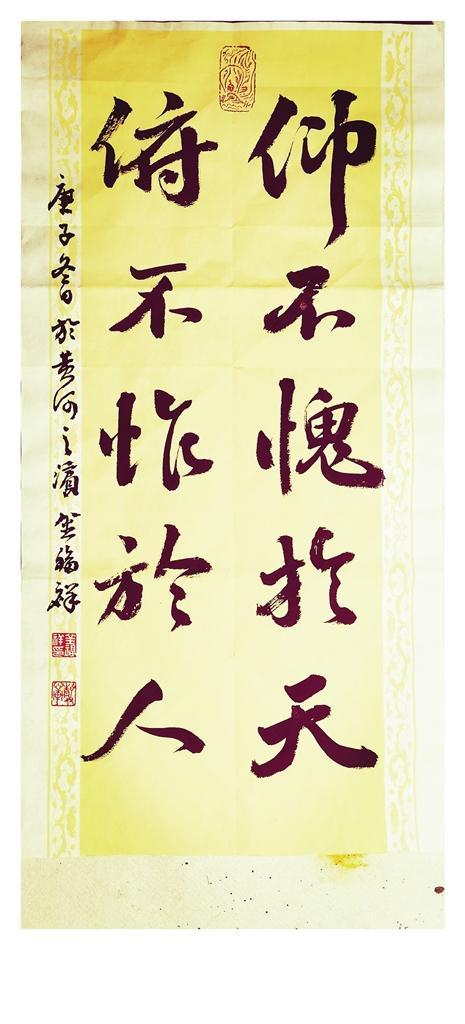 仰不愧於天
俯不怍於人
庚子冬日於黄河之濱 福祥